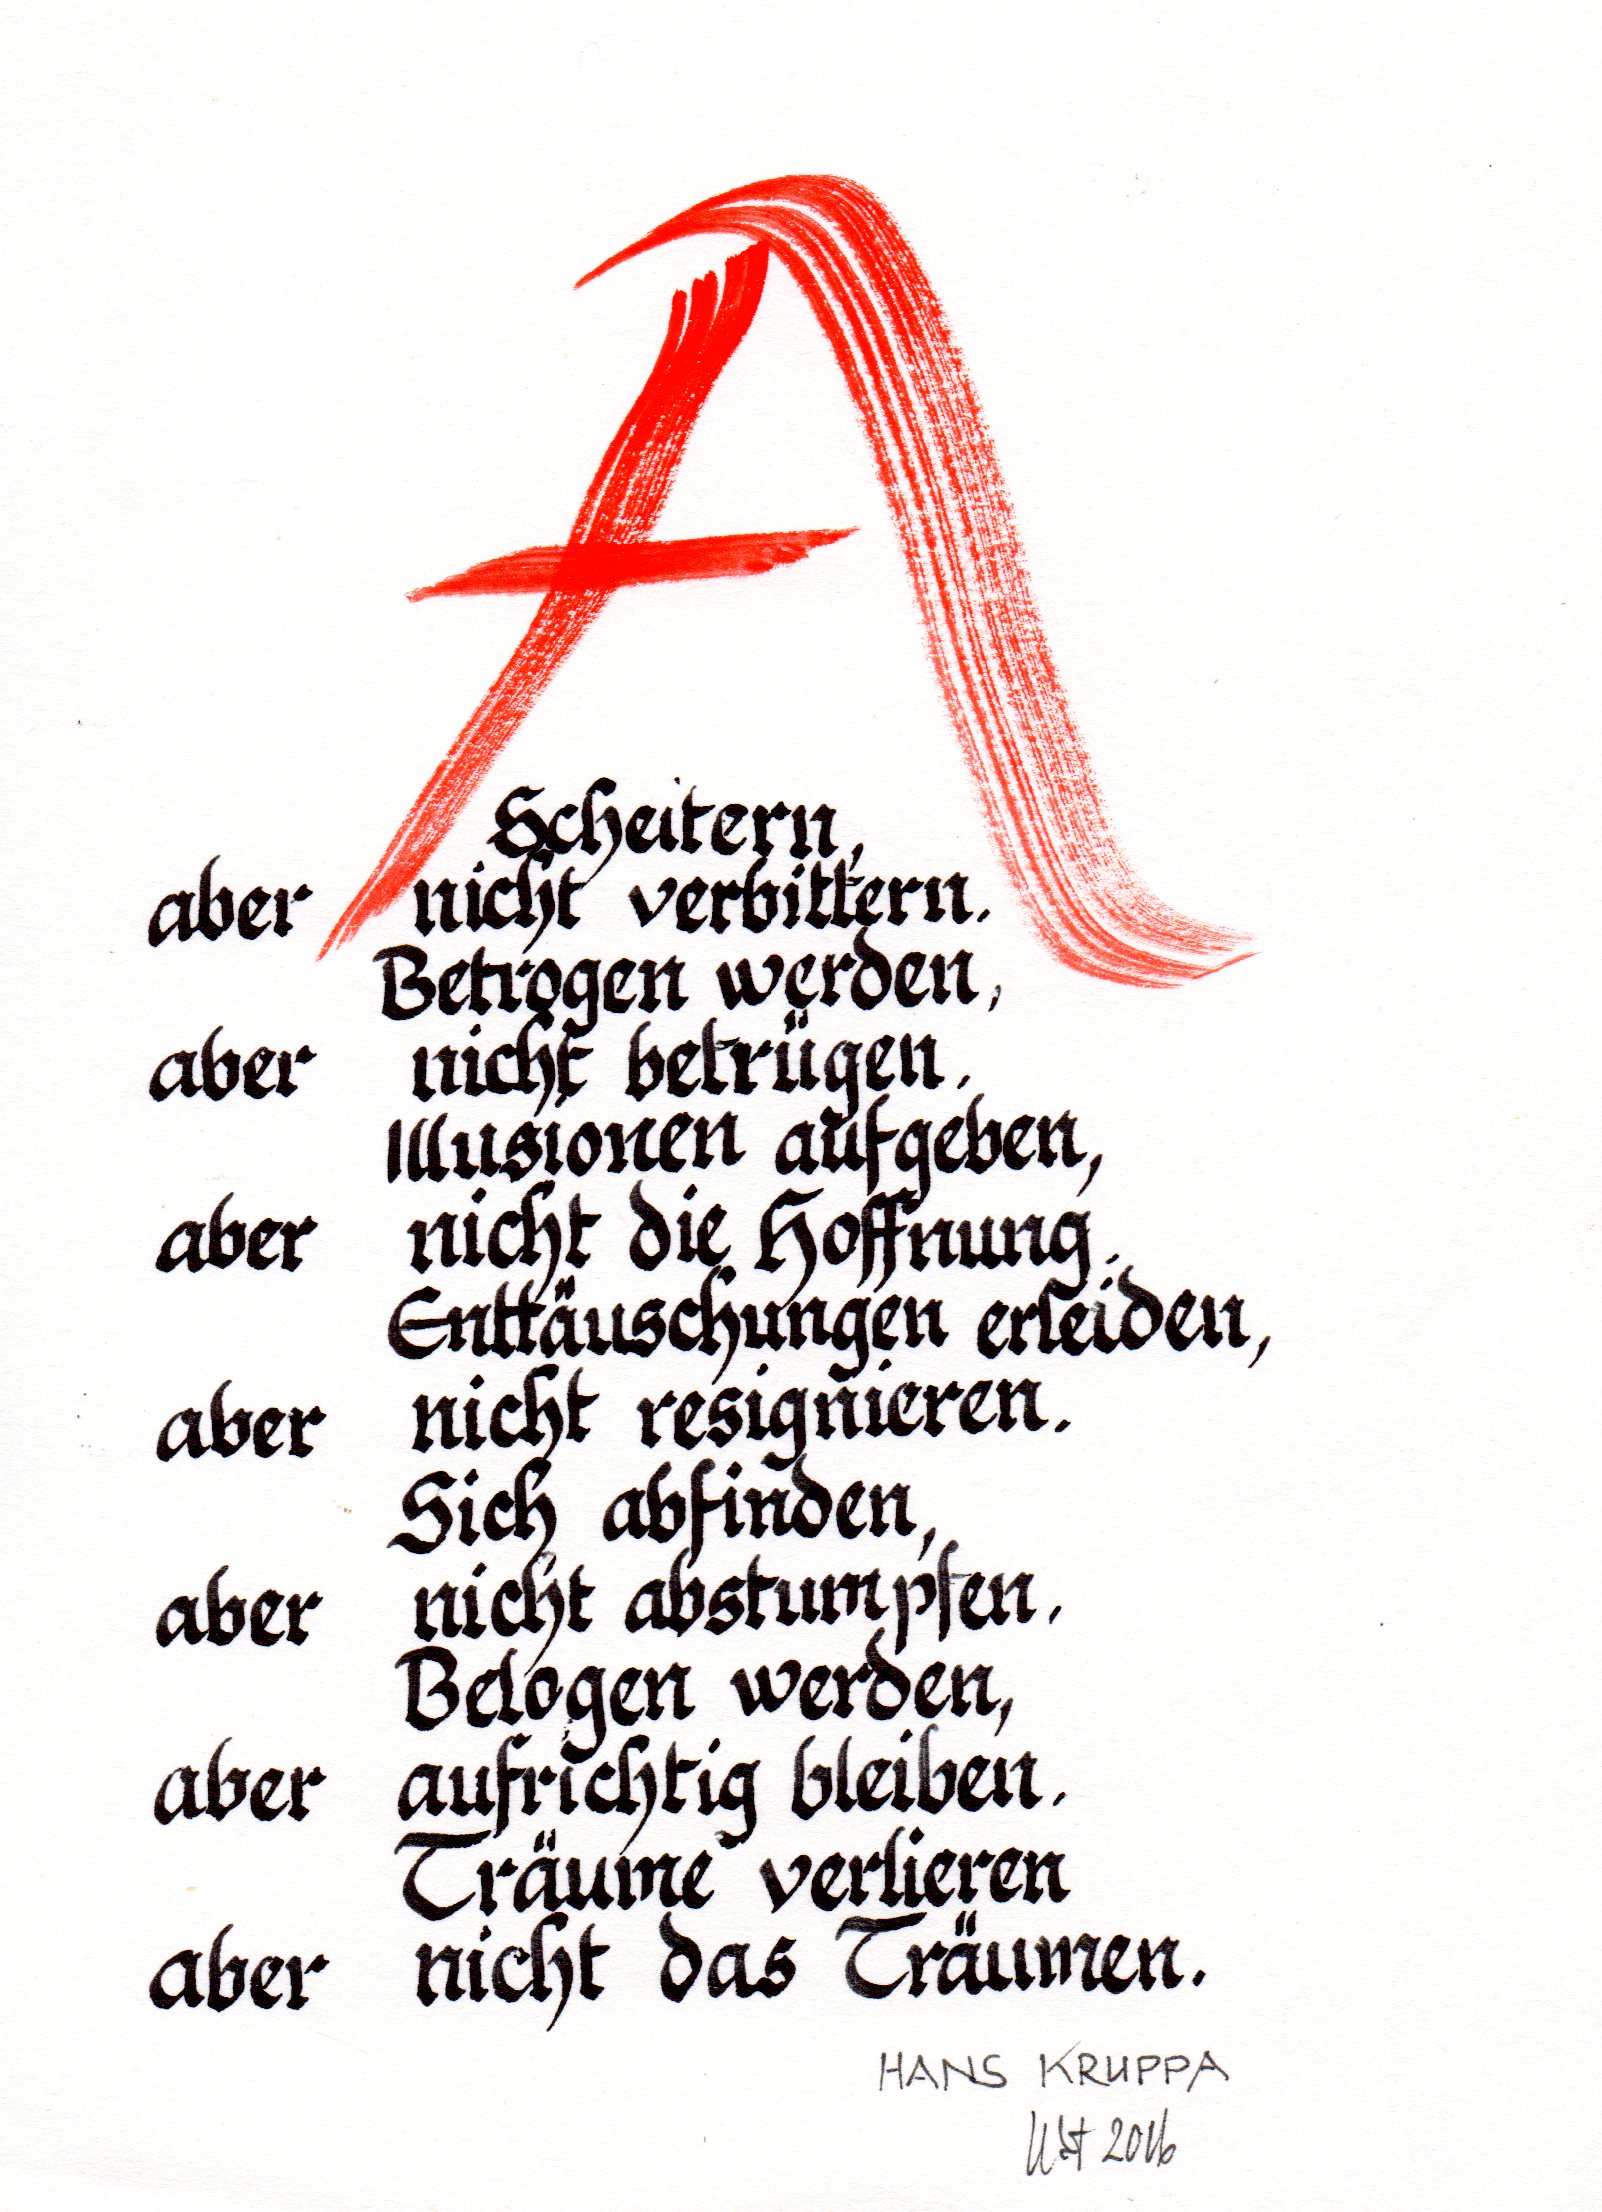 A
Scheitern,
aber nicht verbittern.
Betrogen werden,
aber nicht betrügen.
Illusionen aufgeben,
aber nicht die Hoffnung.
Enttäuschungen erleiden,
aber nicht resignieren.
Sich abfinden,
aber nicht abstumpfen.
Belogen werden,
aber aufrichtig bleiben.
Träume verlieren
aber nicht das Träumen.
HANS KRUPPA
2016